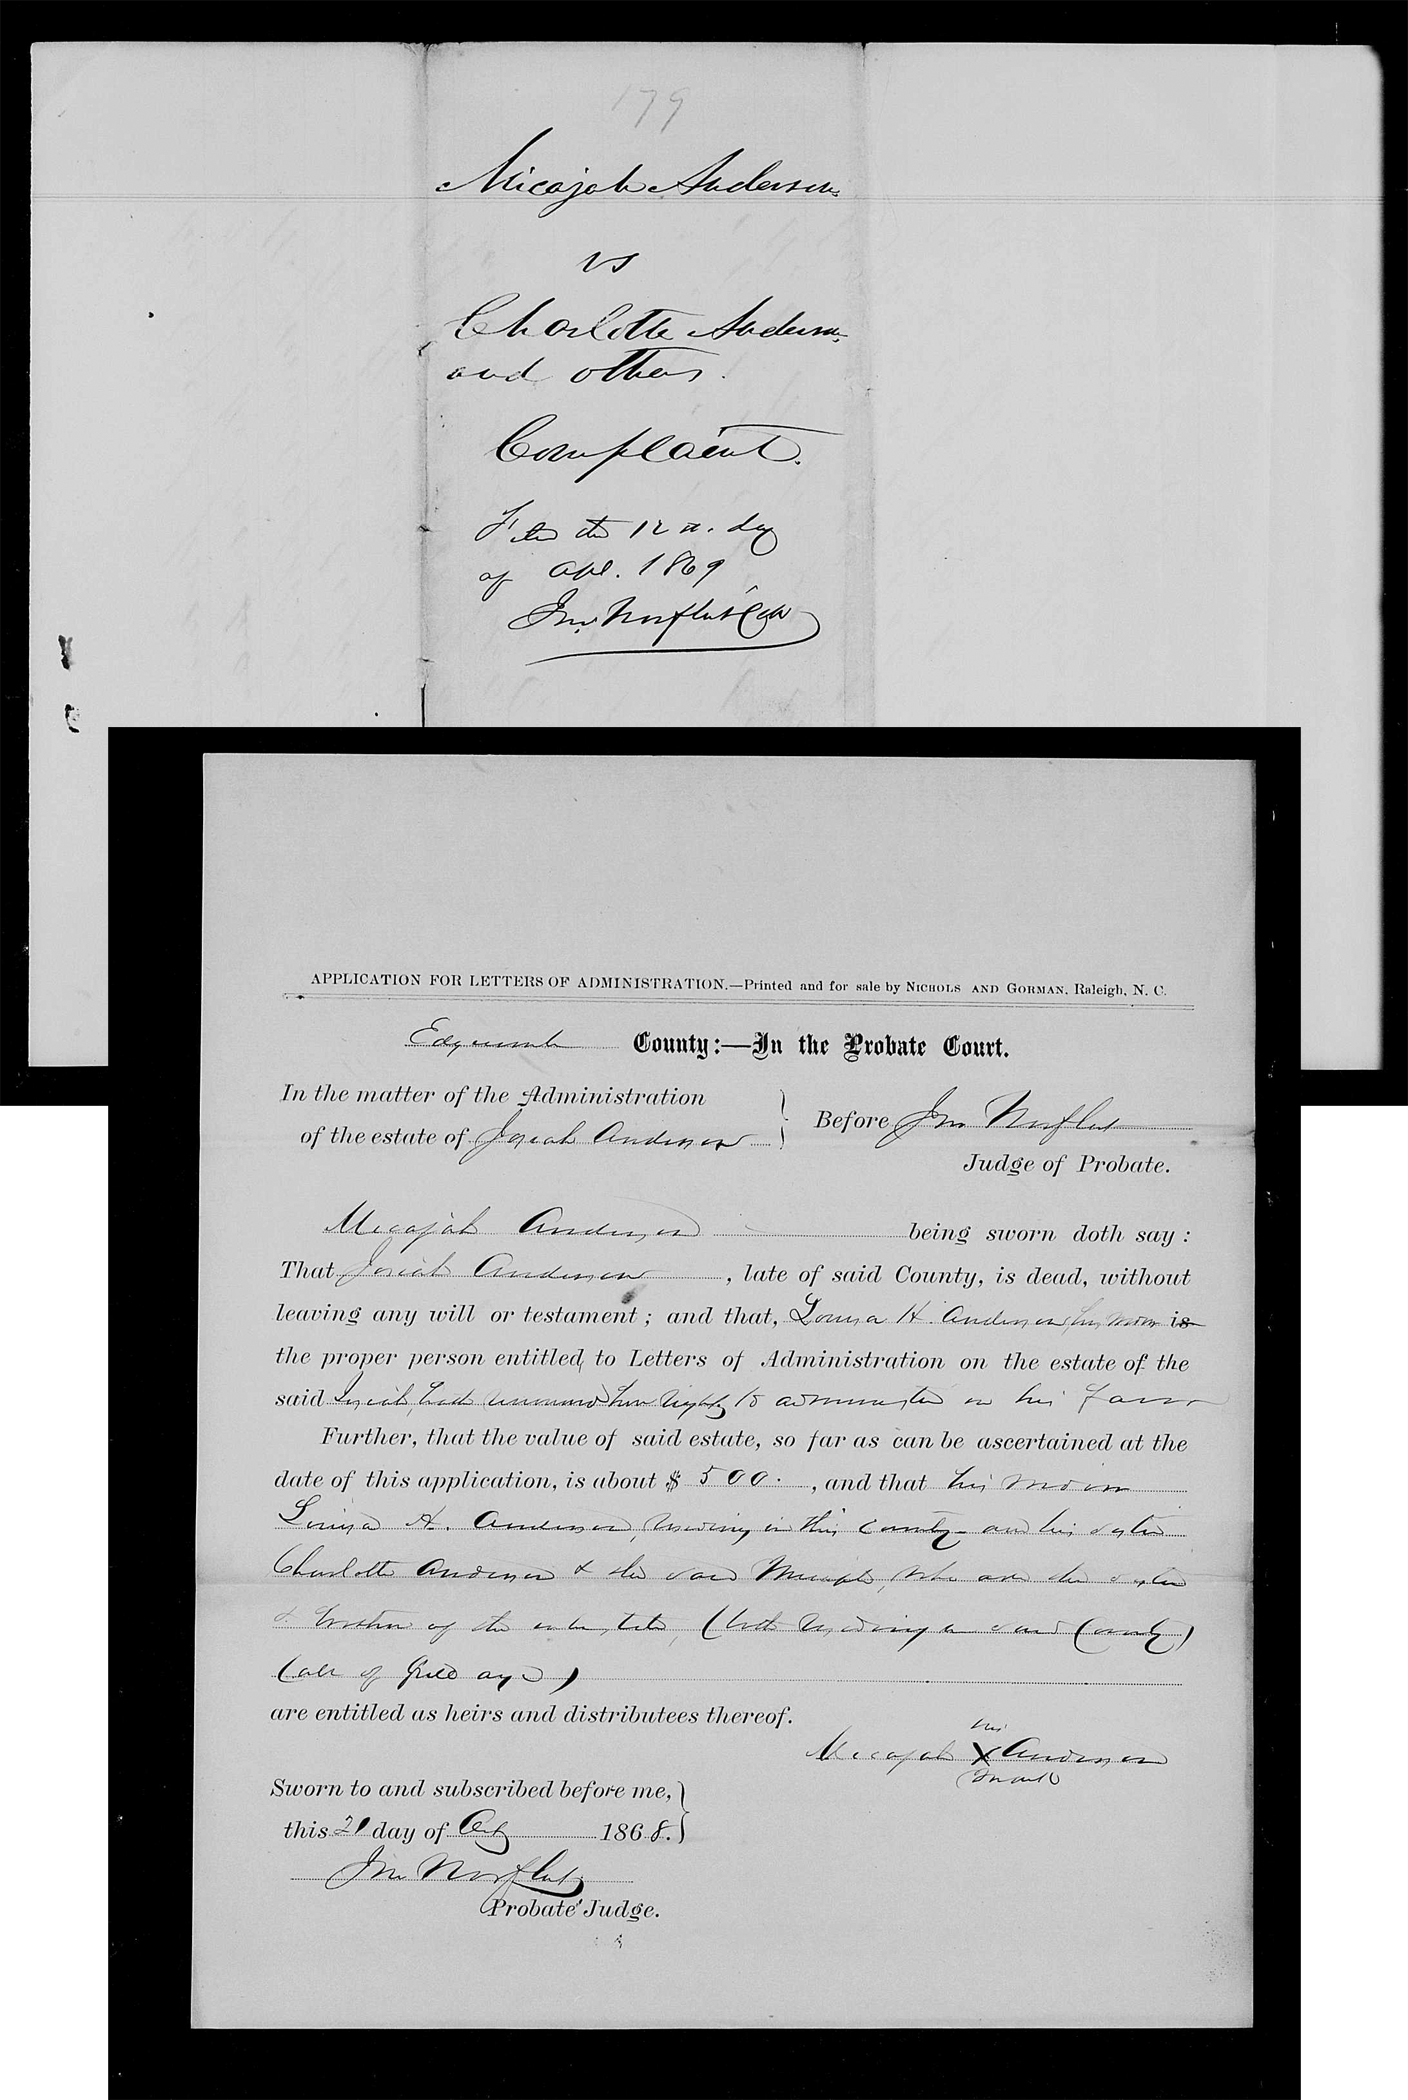 179
Micajah Anderson
vs
Charlotte Anderson
and others.
Complaint.
Filed the 12th. day
of Apl. 1869
Jno. Norfleet
APPLICATION FOR LETTERS OF ADMINISTRATION.—Printed and for sale by NICHOLS AND GORMAN, Raleigh, N. C.
Edgecombe County:—In the Probate Court.
In the matter of the Administration
of the estate of Josiah Anderson
Before Jno Norfleet
Judge of Probate.
Micajah Anderson being sworn doth say:
That Josiah Anderson, late of said County, is dead, without
leaving any will or testament; and that, Louisa H. Anderson, his is
the proper person entitled, to Letters of Administration on the estate of the
said Josiah, hath her right to administer in his favor
Further, that the value of said estate, so far as can be ascertained at the
date of this application, is about $ 500. , and that his
Louisa H. Anderson, residing in this County and his sister
Charlotte Anderson & the said Micajah, who are the sister
& brother of the intestate, (both residing in said County)
(all of full age)
are entitled as heirs and distributees thereof.
his
Micajah X Anderson
mark
Sworn to and subscribed before me,
this 21 day of 1868.
Jno Norfleet
Probate Judge.